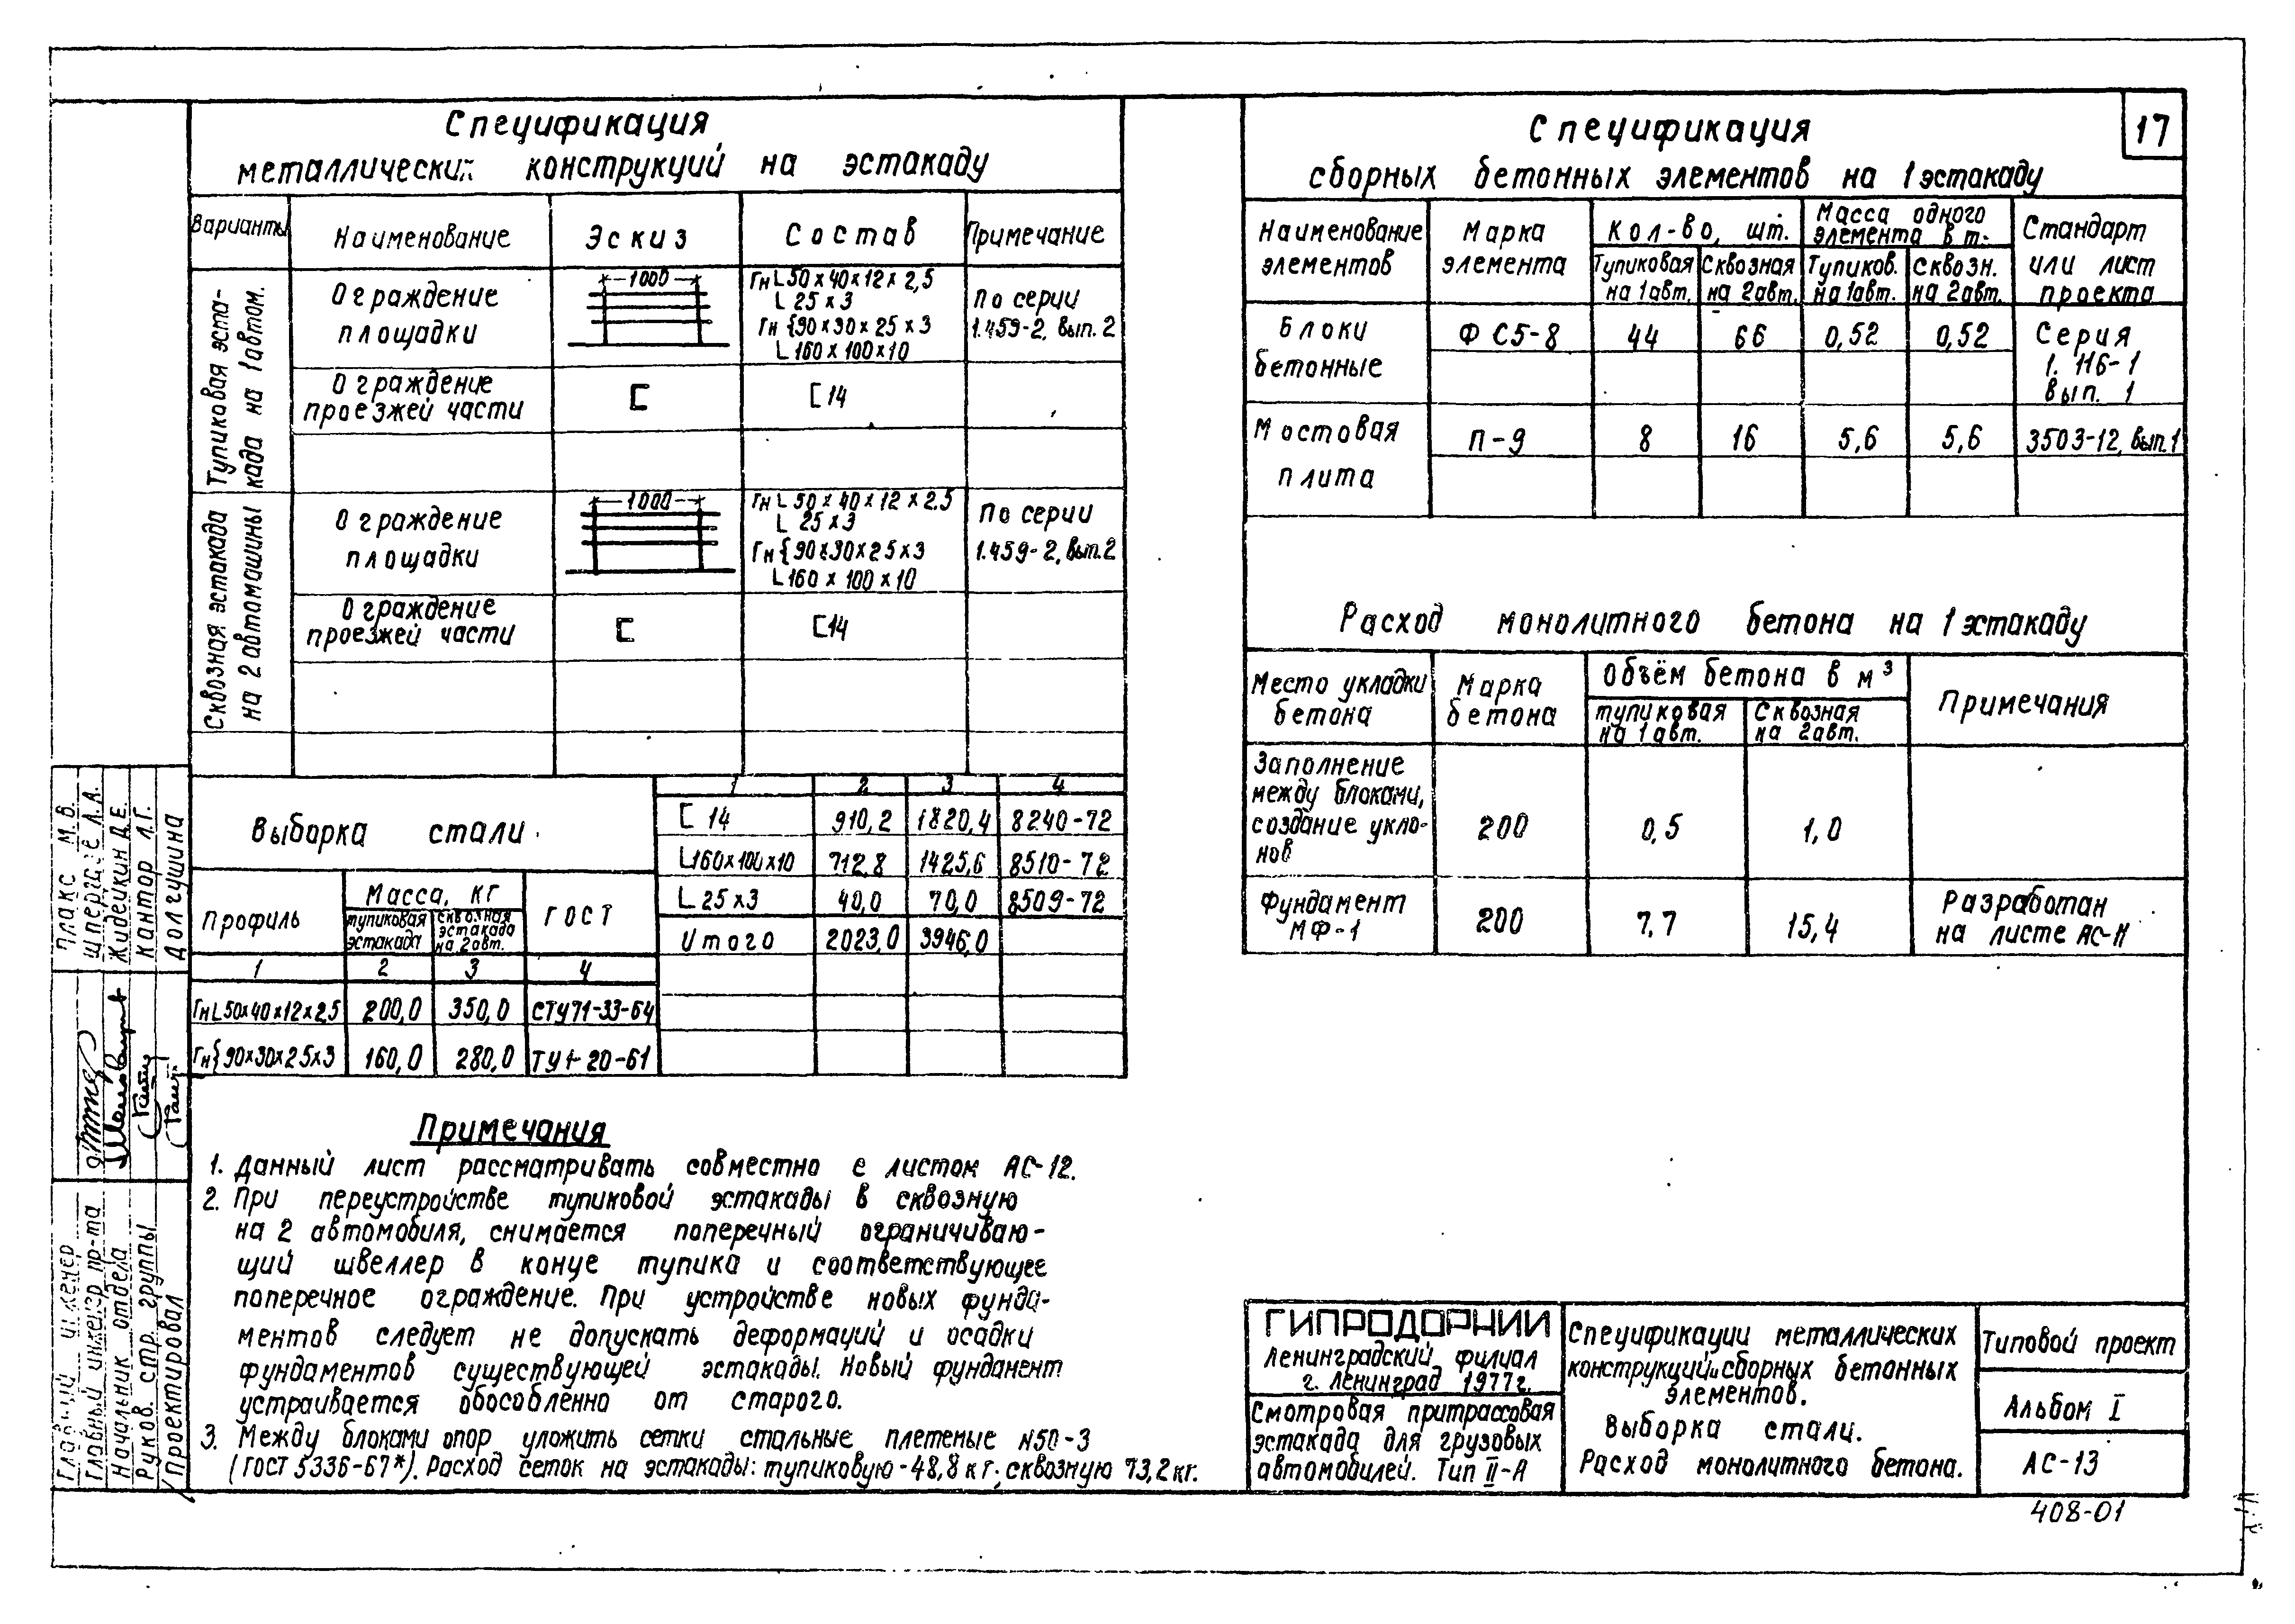 17
Спецификация
металлических конструкций на эстакаду
Варианты Наименование Эскиз Состав Примечание
Тупиковая эста-
када на 1 автом.
Ограждение
площадки
1000
Гн L 50×40×12×2,5
L 25×3
Гн {90×30×25×3
L 160×100×10
По серии
1.459-2, вып. 2
Ограждение
проезжей части
[
[ 14
Сквозная эстакада
на 2 автомашины
Ограждение
площадки
1000
Гн L 50×40×12×2.5
L 25×3
Гн {90×30×25×3
L 160×100×10
По серии
1.459-2, вып. 2
Ограждение
проезжей части
[
[ 14
Выборка стали
Профиль Масса, кг ГОСТ
тупиковая эстакада
сквозная эстакада на 2авт.
1 2 3 4
Гн L 50×40×12×2,5 200,0 350,0 СТУ 71-33-64
Гн {90×30×25×3 160,0 280,0 ТУ 1-20-61
1 2 3 4
[ 14 910,2 1820,4 8240-72
L 160×100×10 712,8 1425,6 8510-72
L 25×3 40,0 70,0 8509-72
Итого 2023,0 3946,0
Примечания
1. Данный лист рассматривать совместно с листом АС-12.
2. При переустройстве тупиковой эстакады в сквозную
на 2 автомобиля, снимается поперечный ограничиваю-
щий швеллер в конце тупика и соответствующее
поперечное ограждение. При устройстве новых фунда-
ментов следует не допускать деформаций и осадки
фундаментов существующей эстакады. Новый фундамент
устраивается обособленно от старого.
3. Между блоками опор уложить сетки стальные плетеные №50-3
(ГОСТ 5336-67*). Расход сеток на эстакады: тупиковую-48,8 кг; сквозную 73,2 кг.
Спецификация
сборных бетонных элементов на 1 эстакаду
Наименование элементов
Марка элемента
Кол-во, шт.
Масса одного элемента в т.
Стандарт или лист проекта
Тупиковая на 1авт.
Сквозная на 2авт.
Тупиков. на 1авт.
Сквозн. на 2авт.
Блоки
бетонные
ФС5-8 44 66 0,52 0,52
Серия
1.116-1
вып. 1
Мостовая
плита
П-9 8 16 5,6 5,6 3503-12, вып.1
Расход монолитного бетона на 1 эстакаду
Место укладки бетона
Марка бетона
Объём бетона в м³
Примечания
тупиковая на 1 авт.
Сквозная на 2авт.
Заполнение
между блоками,
создание укло-
нов
200 0,5 1,0
Фундамент
МФ-1
200 7,7 15,4
Разработан
на листе АС-11
ГИПРОДОРНИИ
Ленинградский филиал
г. Ленинград 1977г.
Смотровая притрассовая
эстакада для грузовых
автомобилей. Тип II-А
Спецификации металлических
конструкций и сборных бетонных
элементов.
Выборка стали.
Расход монолитного бетона.
Типовой проект
Альбом I
АС-13
408-01
Главный инженер Плакс М.В.
Главный инженер пр-та
Начальник отдела Жидейкин Д.Е.
Руков. стр. группы Кантор Л.Г.
Проектировал Долгушина